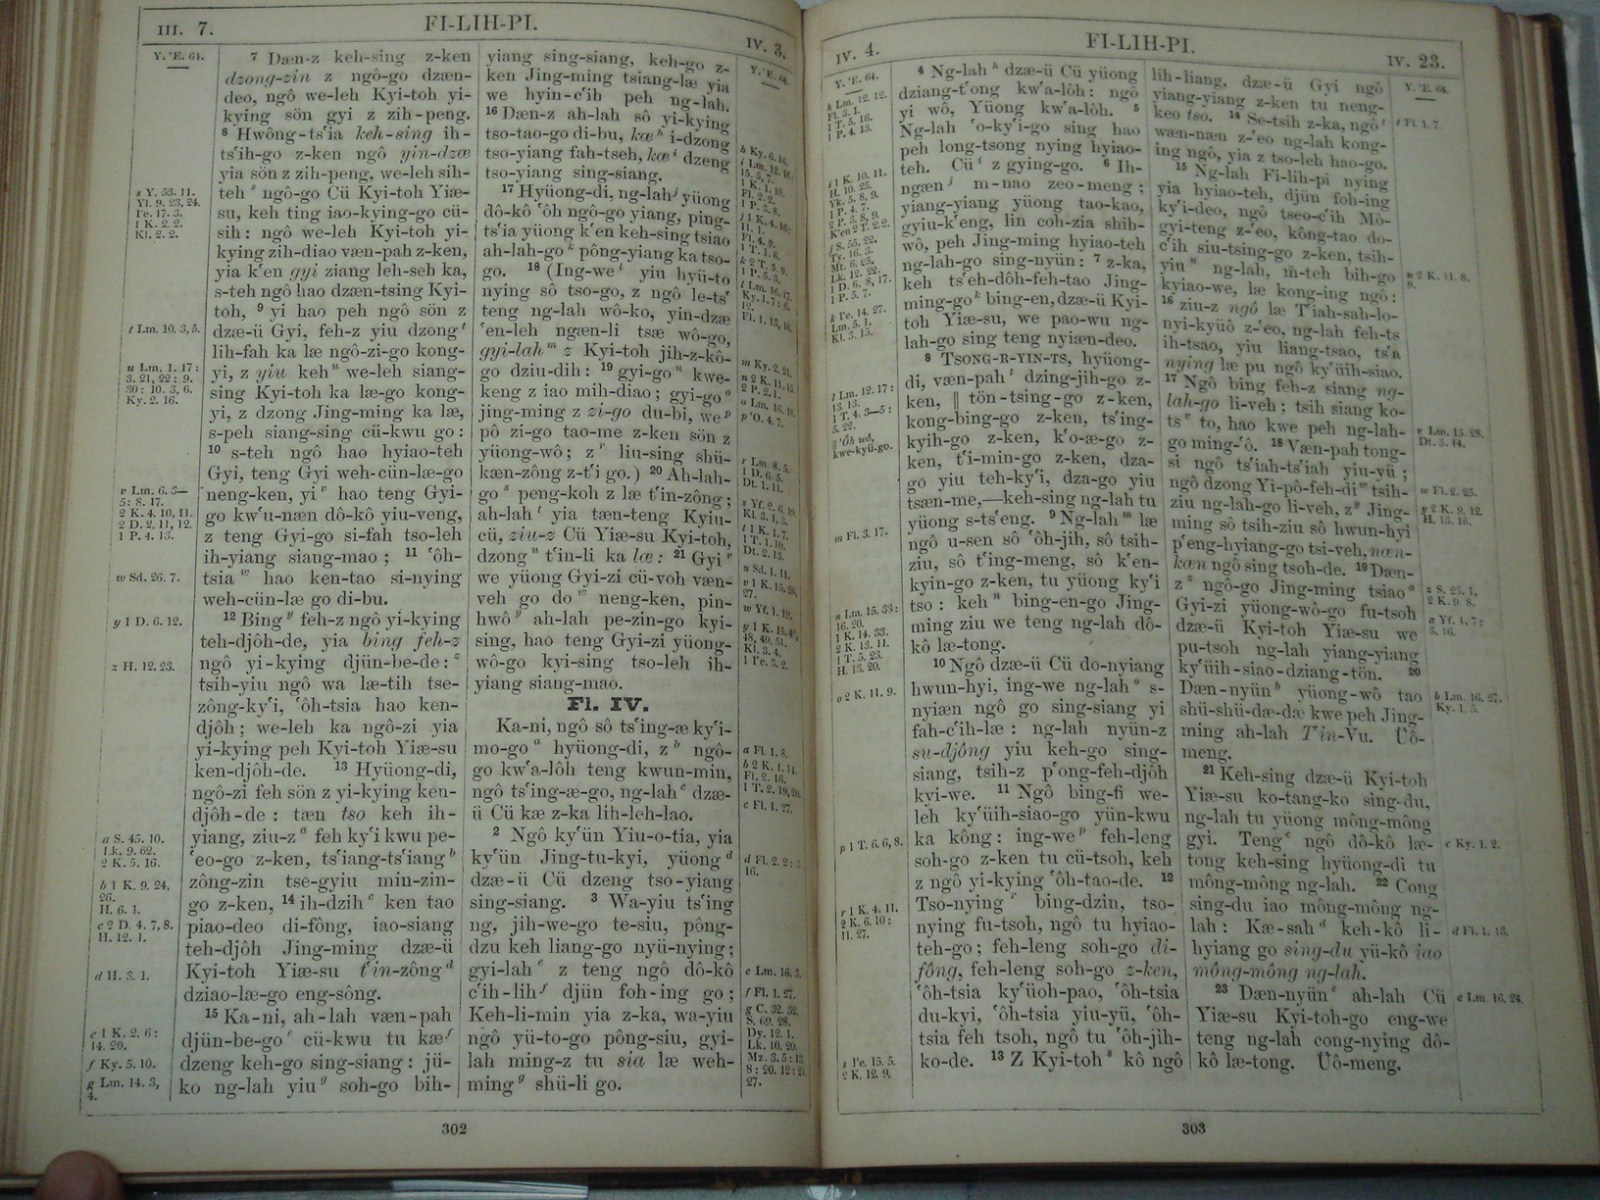 III. 7.
FI-LIH-PI.
IV. 3.
Y. 'E. 64.
s Y. 53. 11.
Yl. 9. 23, 24.
Pe. 17. 3.
1 K. 2. 2.
Kl. 2. 2.
t Lm. 10. 3, 5.
u Lm. 1. 17:
3. 21, 22: 9.
30: 10. 3, 6.
Ky. 2. 16.
v Lm. 6. 3—
5: 8. 17.
2 K. 4. 10, 11.
2 D. 2. 11, 12.
1 P. 4. 13.
w Sd. 26. 7.
y 1 D. 6. 12.
z H. 12. 23.
a S. 45. 10.
Lk. 9. 62.
2 K. 5. 16.
b 1 K. 9. 24,
26.
H. 6. 1.
c 2 D. 4. 7, 8.
H. 12. 1.
d H. 3. 1.
e 1 K. 2. 6:
14. 20.
f Ky. 5. 10.
g Lm. 14. 3,
4.
7 Dæn-z keh-sing z-ken
dzong-zin z ngô-go dzæn-
deo, ngô we-leh Kyi-toh yi-
kying sön gyi z zih-peng.
8 Hwông-ts'ia keh-sing ih-
ts'ih-go z-ken ngô yin-dzœ
yia sön z zih-peng, we-leh sih-
teh s ngô-go Cü Kyi-toh Yiæ-
su, keh ting iao-kying-go cü-
sih: ngô we-leh Kyi-toh yi-
kying zih-diao væn-pah z-ken,
yia k'en gyi ziang leh-seh ka,
s-teh ngô hao dzæn-tsing Kyi-
toh, 9 yi hao peh ngô sön z
dzæ-ü Gyi, feh-z yiu dzong t
lih-fah ka læ ngô-zi-go kong-
yi, z yiu keh u we-leh siang-
sing Kyi-toh ka læ-go kong-
yi, z dzong Jing-ming ka læ,
s-peh siang-sing cü-kwu go:
10 s-teh ngô hao hyiao-teh
Gyi, teng Gyi weh-cün-læ-go
neng-ken, yi v hao teng Gyi-
go kw'u-næn dô-kô yiu-veng,
z teng Gyi-go si-fah tso-leh
ih-yiang siang-mao; 11 'ôh-
tsia w hao ken-tao si-nying
weh-cün-læ go di-bu.
12 Bing y feh-z ngô yi-kying
teh-djôh-de, yia bing feh-z
ngô yi-kying djün-be-de: z
tsih-yiu ngô wa læ-tih tse-
zông-ky'i, 'ôh-tsia hao ken-
djôh; we-leh ka ngô-zi yia
yi-kying peh Kyi-toh Yiæ-su
ken-djôh-de. 13 Hyüong-di,
ngô-zi feh sön z yi-kying ken-
djôh-de: tæn tso keh ih-
yiang, ziu-z a feh ky'i kwu pe-
'eo-go z-ken, ts'iang-ts'iang b
zông-zin tse-gyiu min-zin-
go z-ken, 14 ih-dzih c ken tao
piao-deo di-fông, iao-siang
teh-djôh Jing-ming dzæ-ü
Kyi-toh Yiæ-su t'in-zông d
dziao-læ-go eng-sông.
15 Ka-ni, ah-lah væn-pah
djün-be-go e cü-kwu tu kæ f
dzeng keh-go sing-siang: jü-
ko ng-lah yiu g soh-go bih-
yiang sing-siang, keh-go z-
ken Jing-ming tsiang-læ yia
we hyin-c'ih peh ng-lah.
16 Dæn-z ah-lah sô yi-kying
tso-tao-go di-bu, kœ h i-dzong
tso-yiang fah-tseh, kœ i dzeng
tso-yiang sing-siang.
17 Hyüong-di, ng-lah j yüong
dô-kô 'ôh ngô-go yiang, ping-
ts'ia yüong k'en keh-sing tsiao
ah-lah-go k pông-yiang ka tso-
go. 18 (Ing-we l yiu hyü-to
nying sô tso-go, z ngô le-ts'
teng ng-lah wô-ko, yin-dzœ
'en-leh ngæn-li tsæ wô-go,
gyi-lah m z Kyi-toh jih-z-kô-
go dziu-dih: 19 gyi-go n kwe-
keng z iao mih-diao; gyi-go o
jing-ming z zi-go du-bi, we p
pô zi-go tao-me z-ken sön z
yüong-wô; z r liu-sing shü-
kæn-zông z-t'i go.) 20 Ah-lah-
go s peng-koh z læ t'in-zông;
ah-lah t yia tæn-teng Kyiu-
cü, ziu-z Cü Yiæ-su Kyi-toh,
dzong u t'in-li ka lœ: 21 Gyi v
we yüong Gyi-zi cü-voh væn-
veh go do w neng-ken, pin-
hwô y ah-lah pe-zin-go kyi-
sing, hao teng Gyi-zi yüong-
wô-go kyi-sing tso-leh ih-
yiang siang-mao.
FI. IV.
Ka-ni, ngô sô ts'ing-æ ky'i-
mo-go a hyüong-di, z b ngô-
go kw'a-lôh teng kwun-min,
ngô ts'ing-æ-go, ng-lah c dzæ-
ü Cü kæ z-ka lih-leh-lao.
2 Ngô ky'ün Yiu-o-tia, yia
ky'ün Jing-tu-kyi, yüong d
dzæ-ü Cü dzeng tso-yiang
sing-siang. 3 Wa-yiu ts'ing
ng, jih-we-go te-siu, pông-
dzu keh liang-go nyü-nying;
gyi-lah e z teng ngô dô-kô
c'ih-lih f djün foh-ing go;
Keh-li-min yia z-ka, wa-yiu
ngô yü-to-go pông-siu, gyi-
lah ming-z tu sia læ weh-
ming g shü-li go.
Y. 'E. 64.
h Ky. 6. 16.
m Ky. 2. 21.
p 'O. 4. 7.
r Lm. 8. 5.
1 D. 6. 5.
Dt. 1. 11.
u Sd. 1. 11.
w Yf. 1. 19.
a Fl. 1. 8.
b 2 K. 1. 14.
Fl. 2. 16.
1 T. 2. 19, 20.
c Fl. 1. 27.
d Fl. 2. 2: 3.
16.
e Lm. 16. 3.
f Fl. 1. 27.
g C. 32. 32.
S. 69. 28.
Dy. 12. 1.
Lk. 10. 20.
Mz. 3. 5: 13.
8: 20. 12: 21.
27.
302
IV. 4.
FI-LIH-PI.
IV. 23.
Y. 'E. 64.
h Lm. 12. 12.
Fl. 3. 1.
1 T. 5. 16.
1 P. 4. 13.
i 1 K. 10. 11.
H. 10. 25.
Yk. 5. 8, 9.
1 P. 4. 7.
2 P. 3. 8, 9.
j S. 55. 22.
Ty. 16. 3.
Mt. 6. 25.
Lk. 12. 22.
1 D. 6. 8, 17.
1 P. 5. 7.
k Pe. 14. 27.
Lm. 5. 1.
Kl. 3. 15.
l Lm. 12. 17:
13. 13.
1 T. 4. 3—5:
5. 22.
‖ 'Ôh wô,
kwe-kyü-go.
m Fl. 3. 17.
n Lm. 15. 33:
16. 20.
1 K. 14. 33.
2 K. 13. 11.
1 T. 5. 23.
H. 13. 20.
o 2 K. 11. 9.
p 1 T. 6. 6, 8.
r 1 K. 4. 11.
2 K. 6. 10:
11. 27.
s Pe. 15. 5.
2 K. 12. 9.
4 Ng-lah h dzæ-ü Cü yüong
dziang-t'ong kw'a-lôh: ngô
yi wô, Yüong kw'a-lôh. 5
Ng-lah 'o-ky'i-go sing hao
peh long-tsong nying hyiao-
teh. Cü i z gying-go. 6 Ih-
ngæn j m-nao zeo-meng;
yiang-yiang yüong tao-kao,
gyiu-k'eng, lin coh-zia shih-
wô, peh Jing-ming hyiao-teh
ng-lah-go sing-nyün: 7 z-ka,
keh ts'eh-dôh-feh-tao Jing-
ming-go k bing-en, dzæ-ü Kyi-
toh Yiæ-su, we pao-wu ng-
lah-go sing teng nyiæn-deo.
8 TSONG-R-YIN-TS, hyüong-
di, væn-pah l dzing-jih-go z-
ken, ‖ tön-tsing-go z-ken,
kong-bing-go z-ken, ts'ing-
kyih-go z-ken, k'o-æ-go z-
ken, t'i-min-go z-ken, dza-
go yiu teh-ky'i, dza-go yiu
tsæn-me,—keh-sing ng-lah tu
yüong s-ts'eng. 9 Ng-lah m læ
ngô u-sen sô 'ôh-jih, sô tsih-
ziu, sô t'ing-meng, sô k'en-
kyin-go z-ken, tu yüong ky'i
tso: keh n bing-en-go Jing-
ming ziu we teng ng-lah dô-
kô læ-tong.
10 Ngô dzæ-ü Cü do-nyiang
hwun-hyi, ing-we ng-lah o s-
nyiæn ngô go sing-siang yi
fah-c'ih-læ: ng-lah nyün-z
su-djông yiu keh-go sing-
siang, tsih-z p'ong-feh-djôh
kyi-we. 11 Ngô bing-fi we-
leh ky'üih-siao-go yün-kwu
ka kông: ing-we p feh-leng
soh-go z-ken tu cü-tsoh, keh
z ngô yi-kying 'ôh-tao-de. 12
Tso-nying r bing-dzin, tso-
nying fu-tsoh, ngô tu hyiao-
teh-go; feh-leng soh-go di-
fông, feh-leng soh-go z-ken,
'ôh-tsia ky'üoh-pao, 'ôh-tsia
du-kyi, 'ôh-tsia yiu-yü, 'ôh-
tsia feh tsoh, ngô tu 'ôh-jih-
ko-de. 13 Z Kyi-toh s kô ngô
lih-liang, dzæ-ü Gyi ngô
yiang-yiang z-ken tu neng-
keo tso. 14 Se-tsih z-ka, ngô t
wæn-næn z-'eo ng-lah kong-
ing ngô, yia z tso-leh hao-go.
15 Ng-lah Fi-lih-pi nying
yia hyiao-teh, djün foh-ing
ky'i-deo, ngô tseo-c'ih Mô-
gyi-teng z-'eo, kông-tao do-
c'ih siu-tsing-go z-ken, tsih-
yiu u ng-lah, m-teh bih-go
kyiao-we, læ kong-ing ngô:
16 ziu-z ngô læ T'iah-sah-lo-
nyi-kyüô z-'eo, ng-lah feh-ts
ih-tsao, yiu liang-tsao, ts'a
nying læ pu ngô ky'üih-siao.
17 Ngô bing feh-z siang ng-
lah-go li-veh; tsih siang ko-
ts v to, hao kwe peh ng-lah-
go ming-'ô. 18 Væn-pah tong-
si ngô ts'iah-ts'iah yiu-yü;
ngô dzong Yi-pô-feh-di w tsih-
ziu ng-lah-go li-veh, z y Jing-
ming sô tsih-ziu sô hwun-hyi
p'eng-hyiang-go tsi-veh, næn-
kœn ngô sing tsoh-de. 19 Dæn-
z z ngô-go Jing-ming tsiao a
Gyi-zi yüong-wô-go fu-tsoh
dzæ-ü Kyi-toh Yiæ-su we
pu-tsoh ng-lah yiang-yiang
ky'üih-siao-dziang-tön. 20
Dæn-nyün b yüong-wô tao
shü-shü-dæ-dæ kwe peh Jing-
ming ah-lah T'in-Vu. Üô-
meng.
21 Keh-sing dzæ-ü Kyi-toh
Yiæ-su ko-tang-ko sing-du,
ng-lah tu yüong mông-mông
gyi. Teng c ngô dô-kô læ-
tong keh-sing hyüong-di tu
mông-mông ng-lah. 22 Cong
sing-du iao mông-mông ng-
lah: Kæ-sah d keh-kô li-
hyiang go sing-du yü-kô iao
mông-mông ng-lah.
23 Dæn-nyün e ah-lah Cü
Yiæ-su Kyi-toh-go eng-we
teng ng-lah cong-nying dô-
kô læ-tong. Üô-meng.
Y. 'E. 64.
t Fl. 1. 7.
u 2 K. 11. 8,
9.
v Lm. 15. 28.
Dt. 3. 14.
w Fl. 2. 25.
y 2 K. 9. 12.
H. 13. 16.
z S. 23. 1.
2 K. 9. 8.
a Yf. 1. 7:
3. 16.
b Lm. 16. 27.
Ky. 1. 5.
c Ky. 1. 2.
d Fl. 1. 13.
e Lm. 16. 24.
303